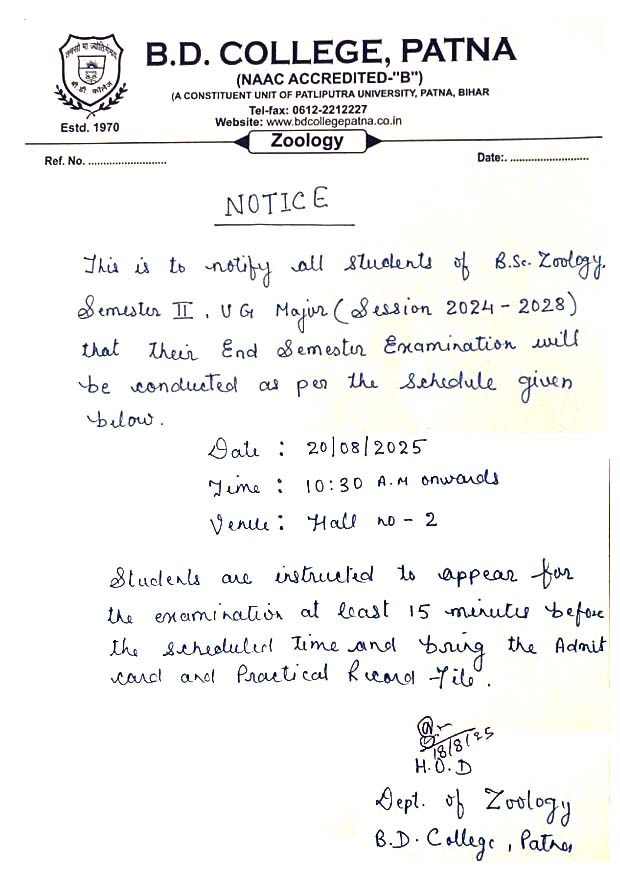 B.D. COLLEGE, PATNA
(NAAC ACCREDITED-"B")
(A CONSTITUENT UNIT OF PATLIPUTRA UNIVERSITY, PATNA, BIHAR
Tel-fax: 0612-2212227
Website: www.bdcollegepatna.co.in
Estd. 1970
Zoology
Ref. No. ..........................
Date:. ..........................
NOTICE
This is to notify all students of B.Sc. Zoology,
Semester II, UG Major (Session 2024-2028)
that their End Semester Examination will
be conducted as per the schedule given
below.
Date : 20/08/2025
Time : 10:30 A.M onwards
Venue : Hall no - 2
Students are instructed to appear for
the examination at least 15 minutes before
the scheduled time and bring the Admit
card and Practical Record File.
18/8/25
H.O.D
Dept. of Zoology
B.D. College, Patna